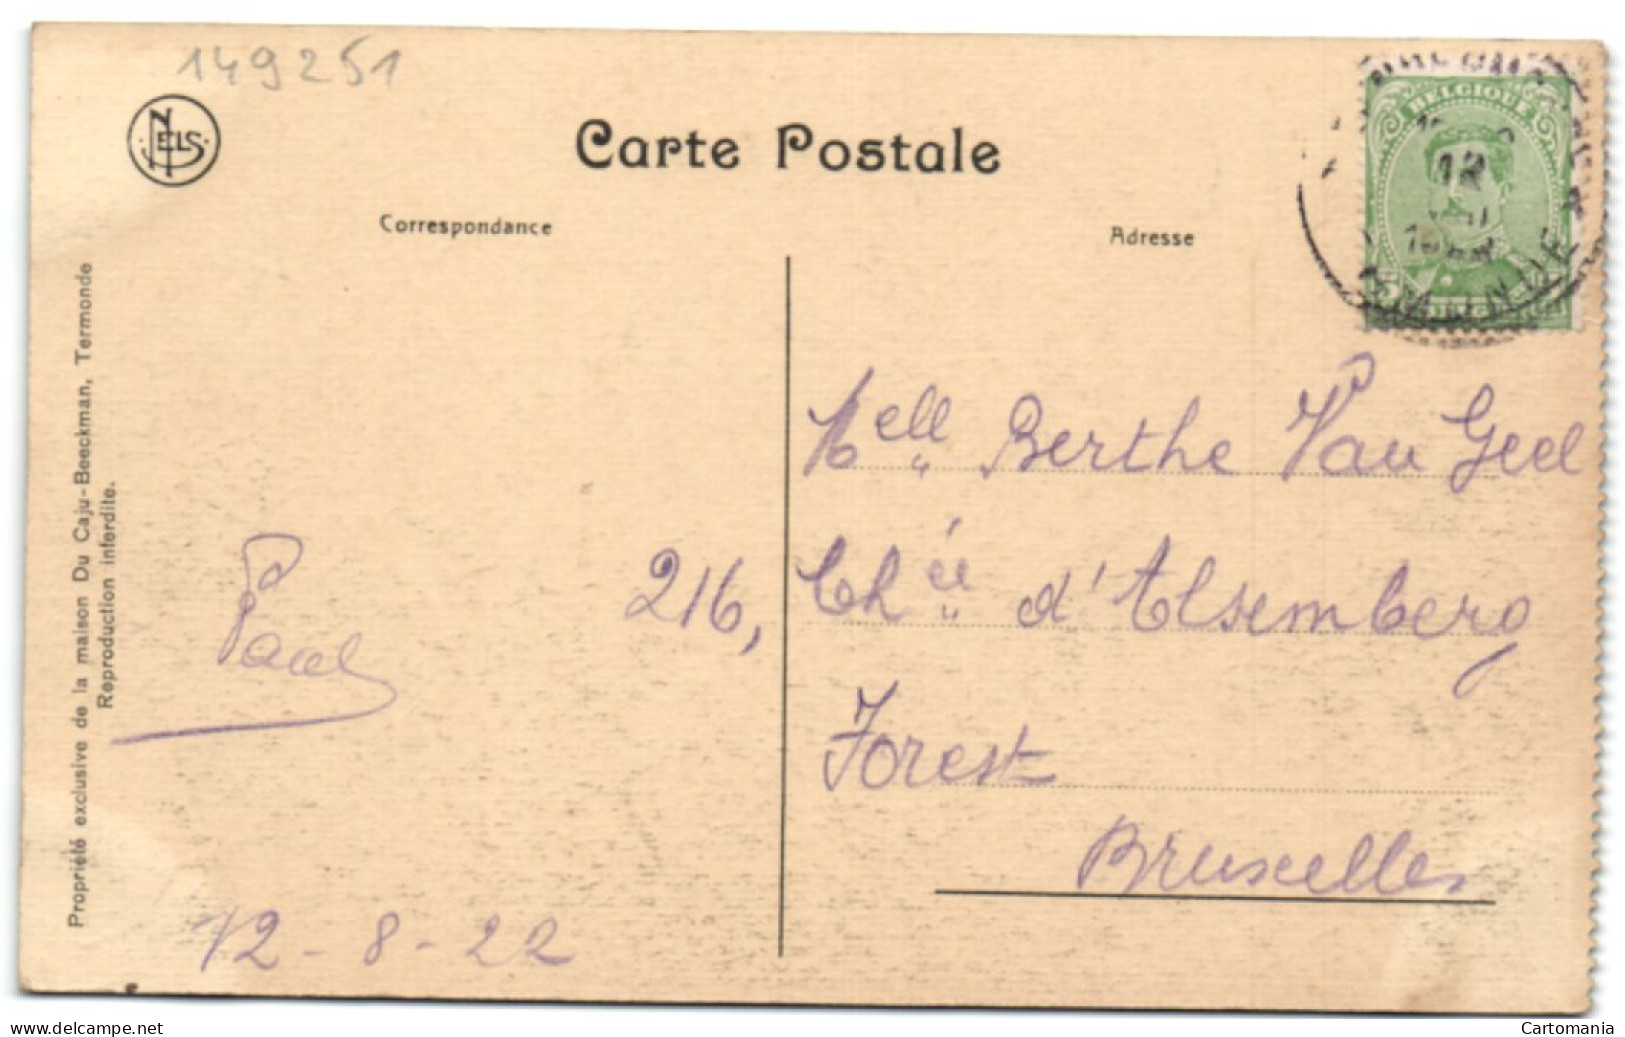 149251
NELS
Carte Postale
Correspondance
Adresse
BELGIQUE
12
Propriété exclusive de la maison Du Caju-Beeckman, Termonde
Reproduction interdite.
Mell" Berthe Van Geel
216, Ch"ée d'Alsemberg
Forest
Bruxelles
Paul
12-8-22
www.cartomania.com
Cartomania